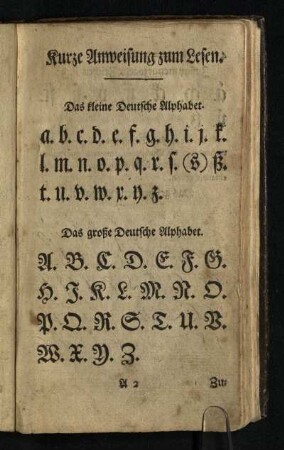 Kurze Anweisung zum Lesen.
Das kleine Deutsche Alphabet.
a. b. c. d. e. f. g. h. i. j. k.
l. m. n. o. p. q. r. ſ. (s) ß.
t. u. v. w. x. y. z.
Das große Deutsche Alphabet.
A. B. C. D. E. F. G.
H. J. K. L. M. N. O.
P. Q. R. S. T. U. V.
W. X. Y. Z.
A 2